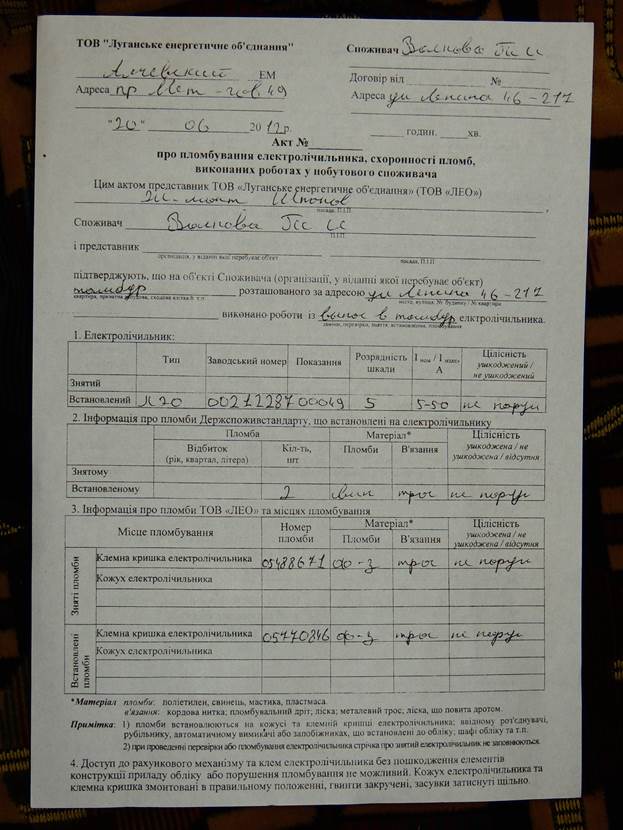 ТОВ "Луганське енергетичне об'єднання"
Споживач Волкова
Алчевский ЕМ
Договір від № 
Адреса пр Мет-гов. 49
Адреса ул Ленина 46-217
"20" 06 2012р.
годин. хв.
Акт №
про пломбування електролічильника, схоронності пломб,
виконаних роботах у побутового споживача
Цим актом представник ТОВ «Луганське енергетичне об'єднання» (ТОВ «ЛЕО»)
посада, П.І.П
Споживач Волкова
П.І.П
і представник
організація, у віданні якої перебуває об'єкт посада, П.І.П
підтверджують, що на об'єкті Споживача (організації, у віданні якої перебуває об'єкт)
тамбур розташованого за адресою ул Ленина 46-217
місто, вулиця, № будинку / № квартири
виконано роботи із вынос в тамбур елктролічильника.
1. Електролічильник:
Тип Заводський номер Показання Розрядність шкали І ном / І макс, А Цілісність ушкоджений / не ушкоджений
Знятий
Встановлений 00212287 00049 5 5-50 не поруш
2. Інформація про пломби Держспоживстандарту, що встановлені на електролічильнику
Пломба Матеріал* Цілісність ушкоджена / не ушкоджена / відсутня
Відбиток (рік, квартал, літера) Кіл-ть, шт Пломби В'язання
Знятому
Встановленому 2 трос не поруш
3. Інформація про пломби ТОВ «ЛЕО» та місцях пломбування
Місце пломбування Номер пломби Матеріал* Цілісність ушкоджена / не ушкоджена / відсутня
Пломби В'язання
Зняті пломби
Клемна кришка електролічильника 05488671 трос не поруш
Кожух електролічильника
Встановлені пломби
Клемна кришка електролічильника 05770846 трос не поруш
Кожух електролічильника
*Матеріал пломби: поліетилен, свинець, мастика, пластмаса.
в'язання: кордова нитка; пломбувальний дріт; ліска; металевий трос; ліска, що повита дротом.
Примітка: 1) пломби встановлюються на кожусі та клемній кришці електролічильника; ввідному роз'єднувачі,
рубільнику, автоматичному вимикачі або запобіжниках, що встановлені до обліку; шафі обліку та т.п.
2) при проведенні перевірки або пломбування електролічильника стрічка про знятий електролічильник не заповнюється.
4. Доступ до рахункового механізму та клем електролічильника без пошкодження елементів
конструкції приладу обліку або порушення пломбування не можливий. Кожух електролічильника та
клемна кришка змонтовані в правильному положенні, гвинти закручені, засувки затиснуті щільно.